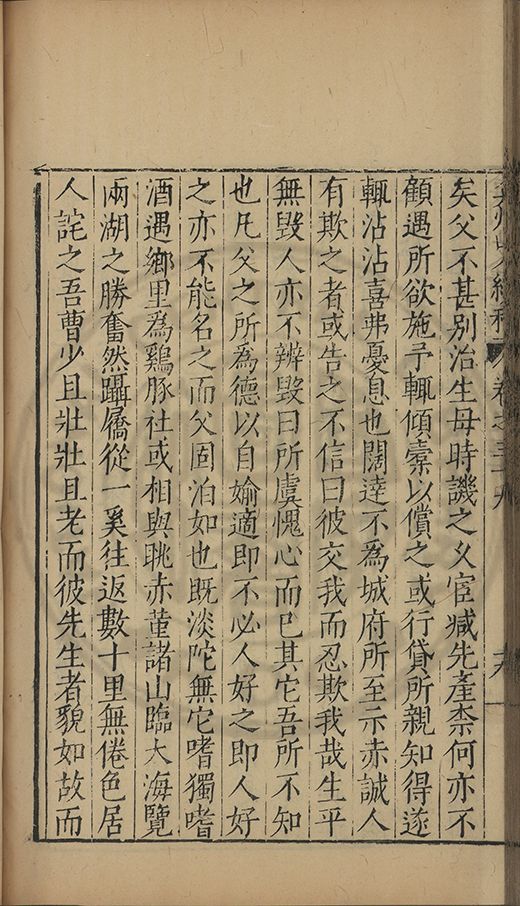 卷之三十九
矣父不甚別治生母時譏之乆宦減先產柰何亦不
顧遇所欲施予輒傾橐以償之或行貸所親知得遂
輒沾沾喜弗憂息也闊達不為城府所至示赤誠人
有欺之者或告之不信曰彼交我而忍欺我哉生平
無毀人亦不辨毀曰所虞愧心而已其它吾所不知
也凡父之所為德以自媮適即不必人好之即人好
之亦不能名之而父固泊如也既淡陀無它嗜獨嗜
酒遇鄉里為鷄豚社或相與眺赤堇諸山臨大海覽
兩湖之勝奮然躡屩從一奚往返數十里無倦色居
人詫之吾曹少且壯壯且老而彼先生者貌如故而